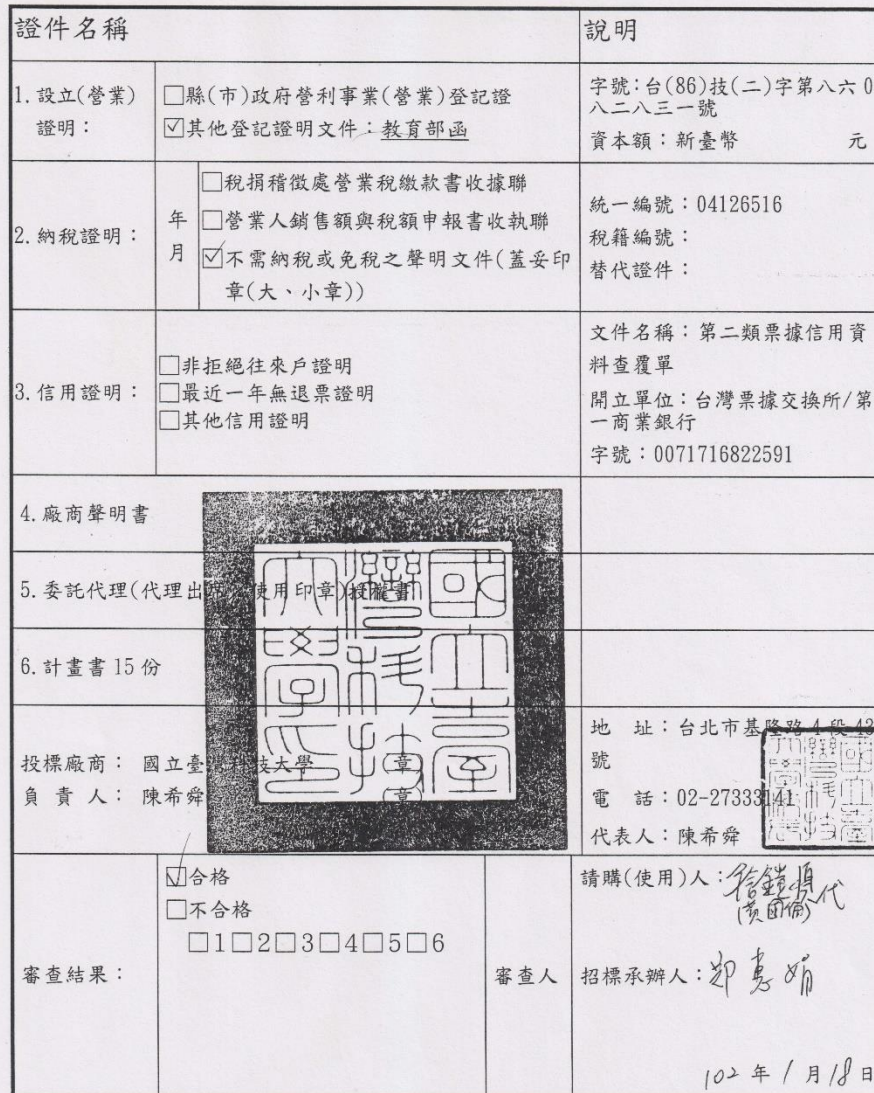 證件名稱
說明
1.設立(營業)
證明：
□縣(市)政府營利事業(營業)登記證
☑其他登記證明文件：教育部函
字號:台(86)技(二)字第八六0
八二八三一號
資本額：新臺幣 元
2.納稅證明：
年
月
□稅捐稽徵處營業稅繳款書收據聯
□營業人銷售額與稅額申報書收執聯
☑不需納稅或免稅之聲明文件(蓋妥印
章(大、小章))
統一編號：04126516
稅籍編號：
替代證件：
3.信用證明：
□非拒絕往來戶證明
□最近一年無退票證明
□其他信用證明
文件名稱：第二類票據信用資
料查覆單
開立單位：台灣票據交換所/第
一商業銀行
字號：0071716822591
4.廠商聲明書
5.委託代理(代理出 使用印章)授權書
6.計畫書15份
國立臺
灣科技
大學印
投標廠商： 國立臺灣科技大學 (章)
負責人： 陳希舜 (章)
地 址：台北市基隆路4段43
號
電 話：02-27333141
代表人：陳希舜
審查結果：
☑合格
□不合格
□1□2□3□4□5□6
審查人
請購(使用)人： 代
招標承辦人：鄭惠娟
102年1月18日